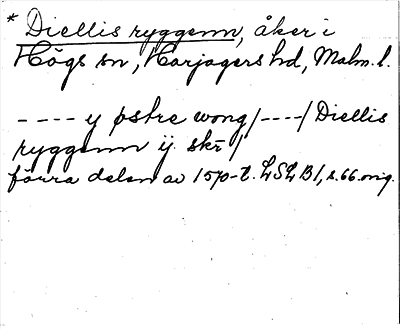 * Diellis ryggenn, åker i
Högs sn, Harjagers hd, Malm. l.
---- y østre wong /----/ Diellis
ryggenn ij. skr /
förra delen av 1570-t. LSLB1, s. 66. orig.